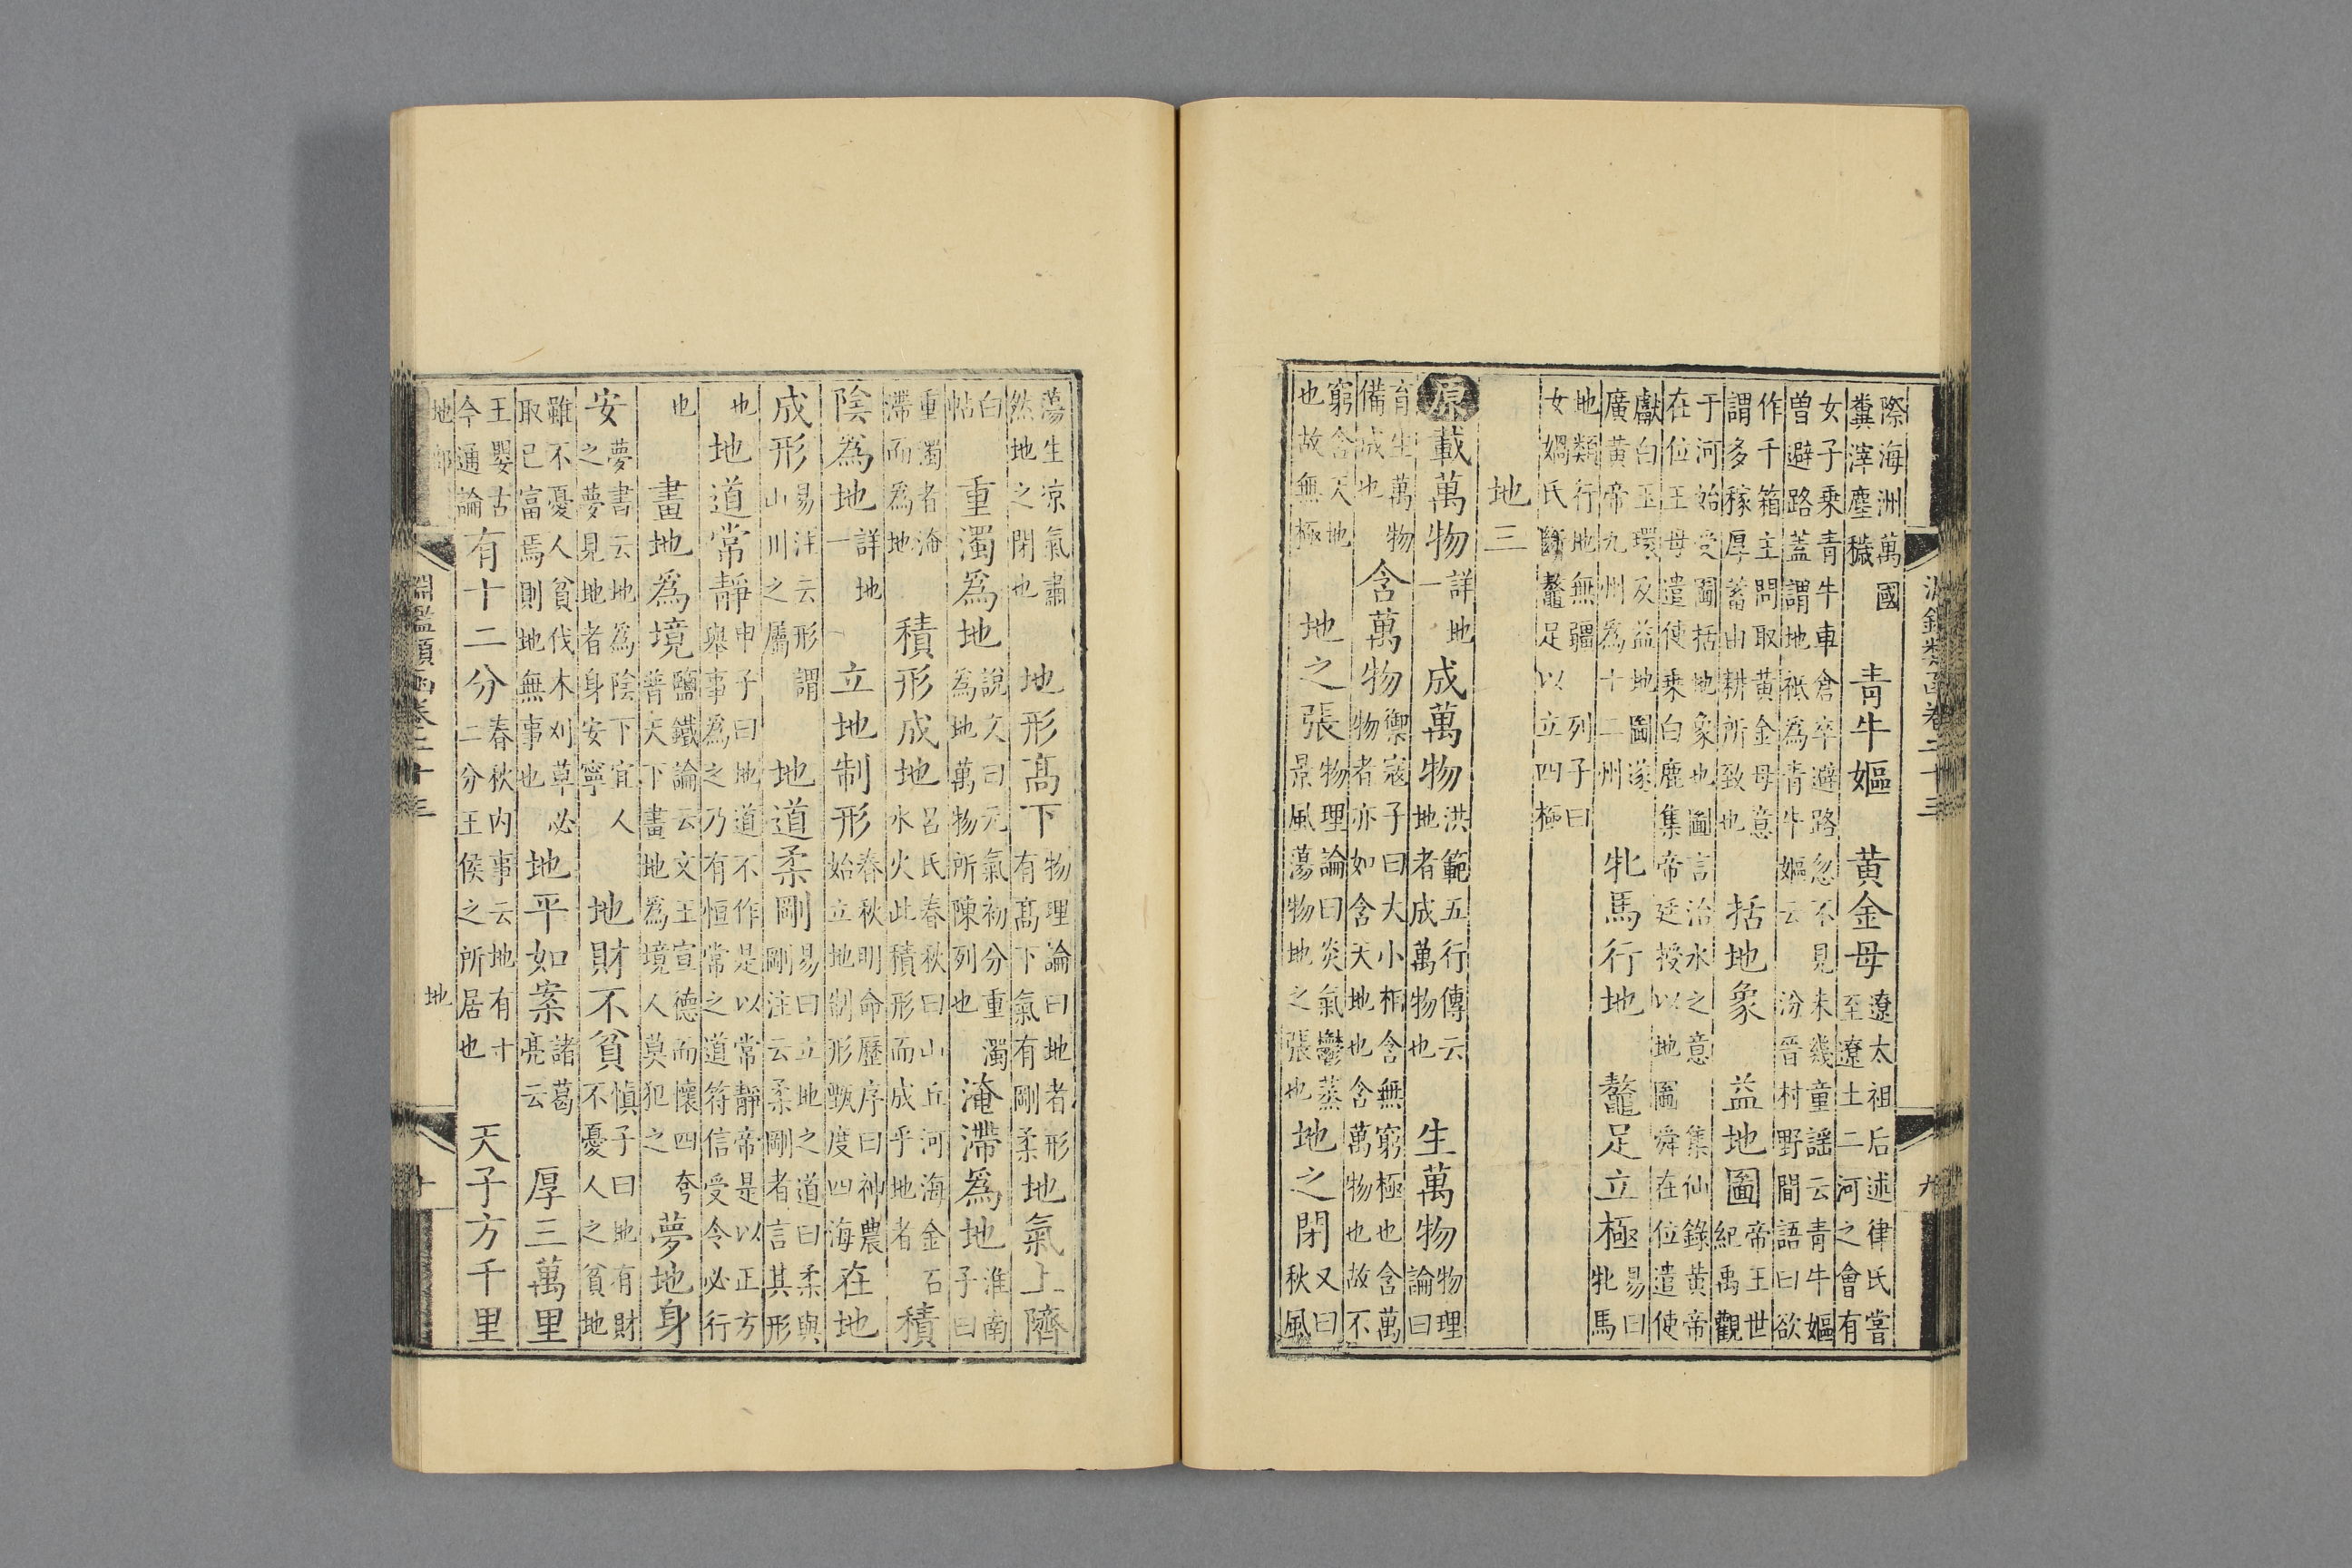 淵鑑類函卷二十三
九
際海洲萬國
糞滓塵穢
青牛嫗
黃金母
遼太祖后述律氏嘗
至遼土二河之會有
女子乘青牛車倉卒避路忽不見未幾童謡云青牛嫗
曾避路蓋謂地祇為青牛嫗云
汾晉村野間語曰欲
作千箱主問取黃金母意
謂多稼厚蓄由耕所致也
括地象
益地圖
帝王世
紀禹觀
于河始受圖括地象也圖言治水之意
集仙錄黃帝
在位王母遣使乘白鹿集帝廷授以地圖
舜在位遣使
獻白玉環及益地圖遂
廣黃帝九州為十二州
牝馬行地
鼇足立極
易曰
牝馬
地類行地無疆
列子曰
女媧氏斷鼇足以立四極
地三
原
載萬物
詳地
一
成萬物
洪範五行傳云
地者成萬物也
生萬物
物理
論曰
育生萬物
備成也
含萬物
禦寇子曰大小相含無窮極也含萬
物物者亦如含天地也含萬物也故不
窮含天地
也故無極
地之張
物理論曰炎氣鬱蒸
景風蕩物地之張也
地之閉
又曰
秋風
蕩生涼氣肅
然地之閉也
地形高下
物理論曰地者形
有高下氣有剛柔
地氣上隮
白
帖
重濁為地
說文曰元氣初分重濁
為地萬物所陳列也
淹滯為地
淮南
子曰
重濁者淹
滯而為地
積形成地
呂氏春秋曰山丘河海金石
水火此積形而成乎地者
積
陰為地
詳地
一
立地制形
春秋明命歷序曰神農
始立地制形甄度四海
在地
成形
易注云形謂
山川之屬
地道柔剛
易曰立地之道曰柔與
剛剛注云柔剛者言其形
也
地道常靜
申子曰地道不作是以常靜帝是以正方
舉事為之乃有恒常之道符信受令必行
也
畫地為境
鹽鐵論云文王宣德而懷四夸
普天下畫地為境人莫犯之
夢地身
安
夢書云地為陰下宜人
之夢見地者身安寧
地財不貧
慎子曰地有財
不憂人之貧地
雖不憂人貧伐木刈草必
取已富焉則地無事也
地平如案
諸葛
亮云
厚三萬里
王嬰古
今通論
有十二分
春秋内事云地有十
二分王侯之所居也
天子方千里
地部
淵鑑類函卷二十三
地
十